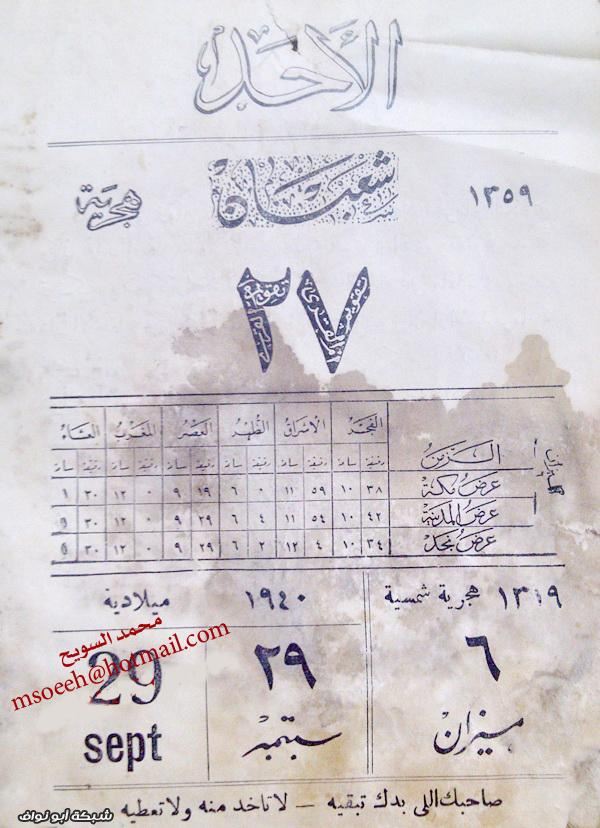 الأحد
١٣٥٩ شعبان هجرية
٢٧
الفجر الاشراق الظهر العصر المغرب العشاء
الزمن دقيقة ساعة دقيقة ساعة دقيقة ساعة دقيقة ساعة دقيقة ساعة دقيقة ساعة
عرض مكة ٣٨ ١٠ ٥٩ ١١ ٠ ٦ ١٩ ٩ ٠ ١٢ ٣٠ ١
عرض المدينة ٤٢ ١٠ ٥٤ ١١ ٤ ٦ ٢٩ ٩ ٠ ١٢ ٣٠
عرض نجد ٣٤ ١٠ ٤ ١٢ ٢ ٦ ٢٩ ٩ ٠ ١٢ ٣٠
١٣١٩ هجرية شمسية ١٩٤٠ ميلادية
محمد السويح
msoeeh@hotmail.com
٦ ٢٩ 29
ميزان سبتمبر sept
صاحبك اللى بدك تبقيه — لا تاخد منه ولا تعطيه
شبكة أبو نواف